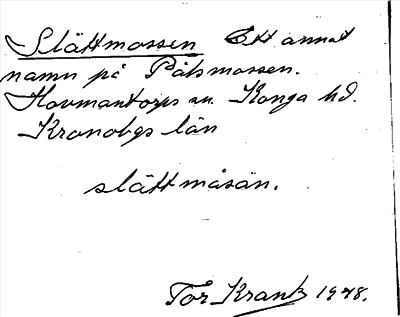 Slättmossen Ett annat
namn på Pålsmossen.
Hovmantorps sn. Konga hd.
Kronobgs län
slättmåsän.
Tor Krantz 1948.